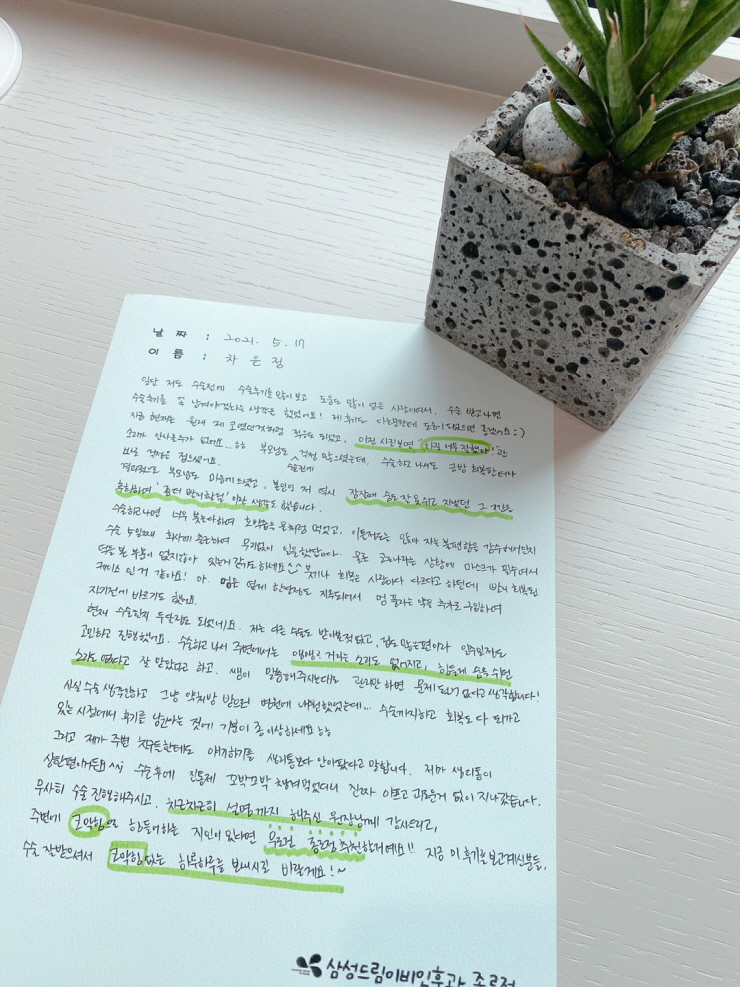 날 짜 : 2021. 5. 17
이 름 : 차 은 정
일단 저도 수술전에 수술후기를 많이보고 도움도 많이 얻은 사람이여서, 수술 받고나면
수술후기를 꼭 남겨야겠다는 생각은 했었어요! 제 후기도 다른분한테 도움이 되었으면 좋겠어요 :)
지금 현재는 원래 제 코였던것처럼 적응도 되었고, 이전 사진보면 "하길 너무 잘했다!" 란
소리만 안나올수가 없어요. ㅎㅎ 부모님도 수술전에 걱정 많으셨는데, 수술하고 나서도 금방 회복한터라
보낸 걱정은 접으셨어요.
결과적으로 부모님도 마음에 드셨고, 본인인 저 역시 잠잘때 숨도 잘 못쉬고 지냈던 그 저를
후회하며 '좀더 빨리할걸' 이란 생각도 했습니다.
수술하고나면 너무 붓는다하여 호박즙을 물처럼 먹었고, 이튿정도는 앉아 자는 불편함은 감수해서인지
수술 5일째 회사에 출근하여 무리없이 일을 했답니다. 물론 코로나라는 상황에 마스크가 필수여서
덕을 본 부분이 없지않아 있는거 같기도 하세요^^ 붓기나 회복은 사람마다 다르다고 하던데 빨리 회복된
케이스인 거 같아요! 아. 멍은 옅게 한달정도 지속되어서 멍 풀리는 약을 추가로 구입하여
자기전에 바르기도 했어요.
현재 수술한지 두달정도 되었네요. 저는 다른 수술도 받아본적 없고, 겁도 많은편이라 일주일정도
고민하고 진행했어요. 수술하고 나서 주변에서는 맹맹거리는 소리도 없어지고, 힘들게 숨을 쉬던
소리도 없다고 잘 맞았다고 하고. 쌤이 말씀해주시는대로 관리만 하면 문제 되는거 없다고 생각합니다!
사실 수술 생각안하고 그냥 약처방 받으러 병원에 내원했었는데... 수술까지하고 회복도 다 되가고
있는 시점에서 후기를 남긴다는 것에 기분이 좀 이상하세요 ㅎㅎ
그리고 제가 주변 친구들한테도 얘기하기를 생리통보다 안아팠다고 말합니다. 제가 생리통이
심한편이거든요^^; 수술후에 진통제 꼬박꼬박 챙겨먹었더니 진짜 아프고 괴로운거 없이 지나갔습니다.
무사히 수술 진행해주시고, 차근차근히 설명까지 해주신 원장님께 감사드리고,
주변에 코막힘으로 힘들어하는 지인이 있다면 무조건 추천하려해요!! 지금 이 후기를 보고계신분들,
수술 잘받으셔서 코막힘없는 하루하루를 보내시길 바랄게요!~
삼성드림이비인후과 종로점